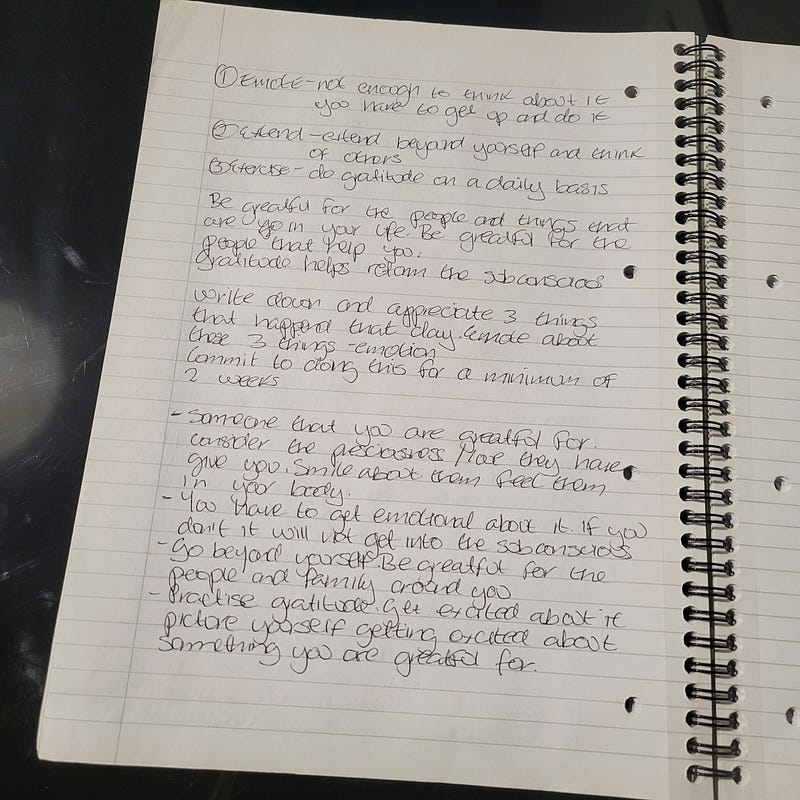 ① Emote - not enough to think about it
you have to get up and do it
② Extend - extend beyond yourself and think
of others
③ Exercise - do gratitude on a daily basis
Be greatful for the people and things that
are go in your life. Be greatful for the
people that help you.
Gratitude helps reform the subconscious
Write down and appreciate 3 things
that happend that day. Emote about
those 3 things - emotion
Commit to doing this for a minimum of
2 weeks
- Someone that you are greatful for.
consider the preciousness / love they have
give you. Smile about them feel them
in your body.
- You have to get emotional about it. If you
don't it will not get into the subconscious
- Go beyond yourself. Be greatful for the
people and family around you
- Practise gratitude. Get excited about it
picture yourself getting excited about
something you are greatful for.